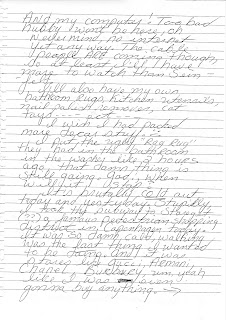 And my computer! Too bad
hubby won't be here, oh
nevermind, no internet
yet any way. The cable
people ARE coming though,
so at least I'll have
more to watch than Sein-
feld.
I still also have my own
bathroom rugs, kitchen utensils,
nail polish remover, cat
toys---- ect. ----
I'll wish I had packed
more decor stuff :(
I put the ugly "Reg Rug"
they had in the bathroom
in the washer like 2 hours
ago, that damn thing is
still going. God... when
will it stop?
It's brutally COLD out
today and yesterday. Stupidly,
I took the subway to
a famous pedestrian shopping
district in Copenhagen today.
It was so damp cold, walking
was the last thing I wanted
to be doing. And it was
stores like Gucci, Hermes,
Chanel, Burberry, um, yeah
like I was even
gonna buy anything. →